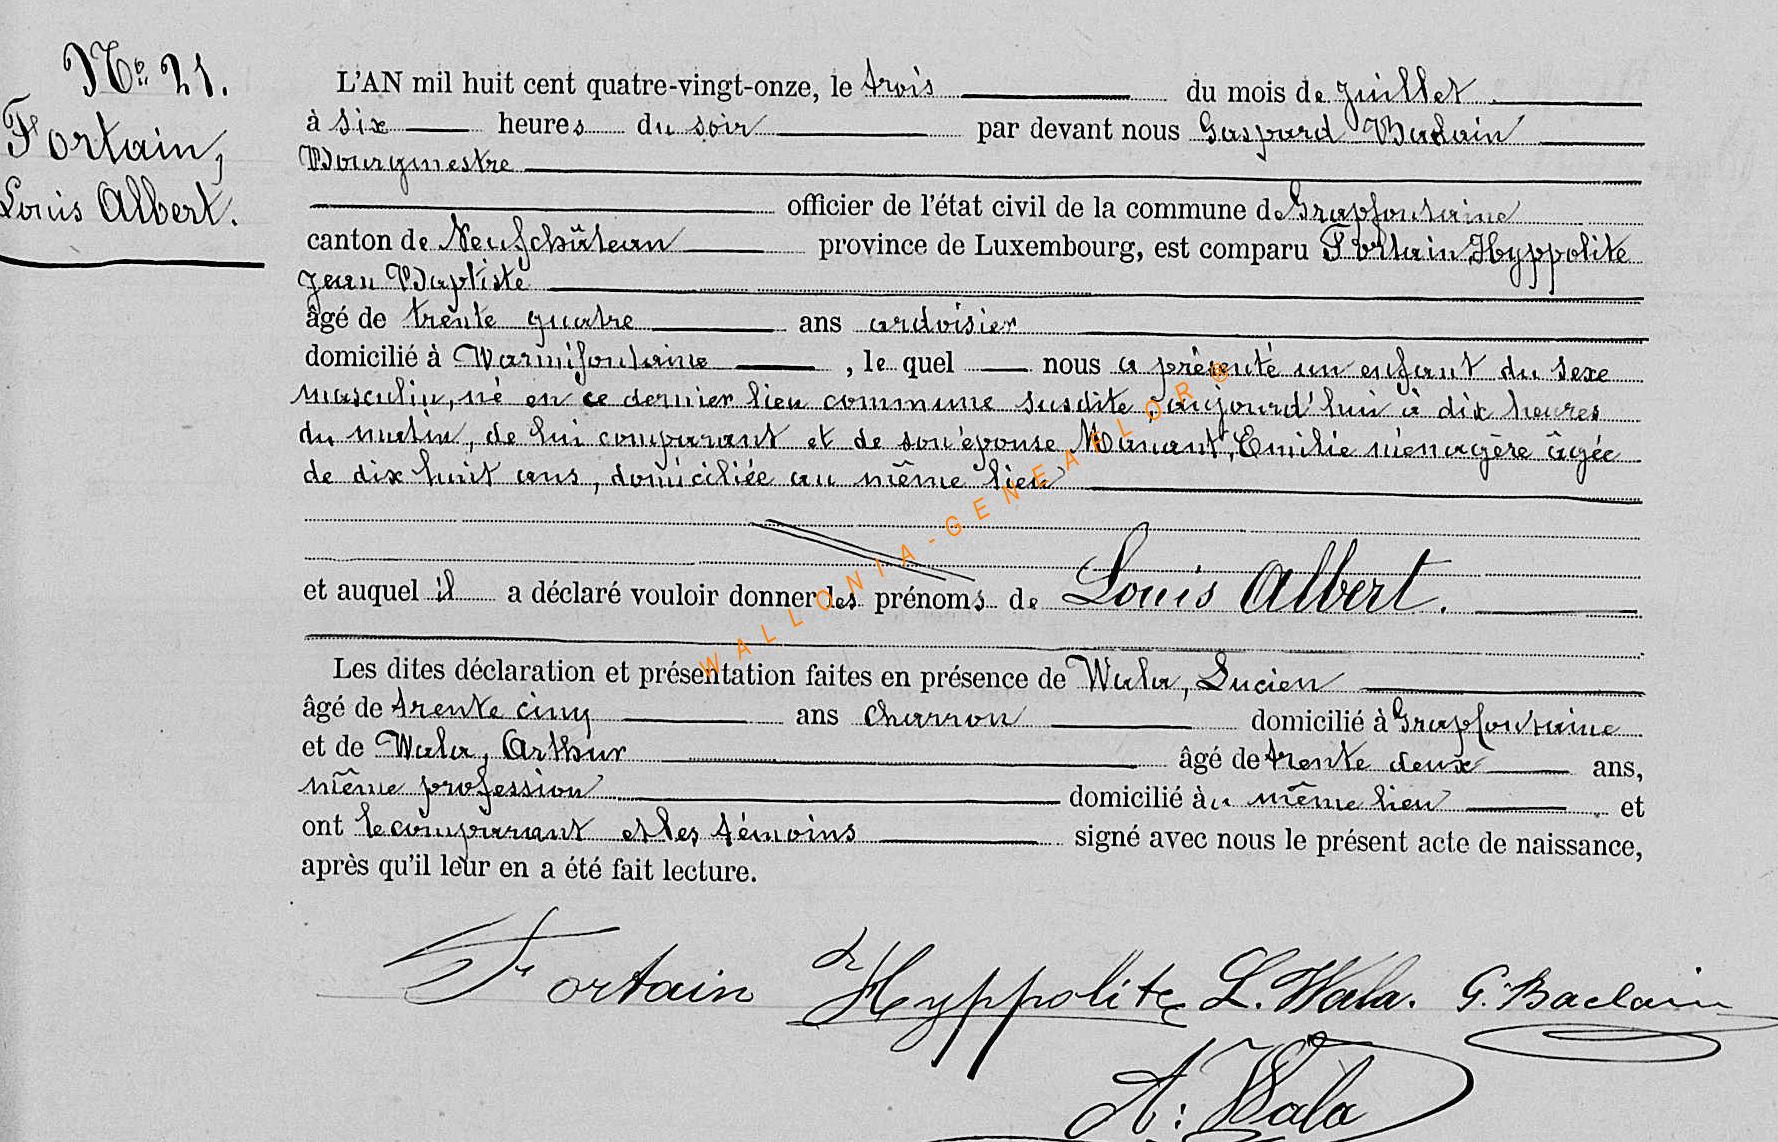 No 21.
Fortain,
Louis Albert.
L'AN mil huit cent quatre-vingt-onze, le trois du mois de juillet
à six heures du soir par devant nous Gaspard Baclain
Bourgmestre
officier de l'état civil de la commune de Grapfontaine
canton de Neufchâteau province de Luxembourg, est comparu Fortain, Hyppolite
Jean Baptiste
âgé de trente quatre ans ardoisier
domicilié à Warmifontaine, le quel nous a présenté un enfant du sexe
masculin, né en ce dernier lieu commune susdite aujourd'hui à dix heures
du matin, de lui comparant et de son épouse Manant, Emilie ménagère âgée
de dix huit ans, domiciliée au même lieu
et auquel il a déclaré vouloir donner les prénoms de Louis Albert.
Les dites déclaration et présentation faites en présence de Wala, Lucien
âgé de trente cinq ans charron domicilié à Grapfontaine
et de Wala, Arthur âgé de trente deux ans,
même profession domicilié au même lieu et
ont le comparant et les témoins signé avec nous le présent acte de naissance,
après qu'il leur en a été fait lecture.
Fortain Hyppolite L. Wala. G. Baclain
A. Wala
WALLONIA-GENEALOR®